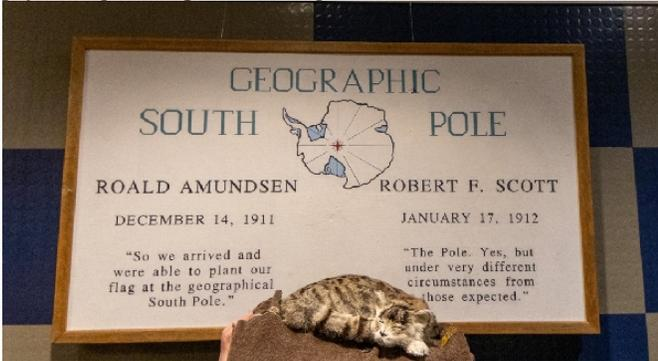 GEOGRAPHIC
SOUTH POLE
ROALD AMUNDSEN
DECEMBER 14, 1911
"So we arrived and
were able to plant our
flag at the geographical
South Pole."
ROBERT F. SCOTT
JANUARY 17, 1912
"The Pole. Yes, but
under very different
circumstances from
those expected."